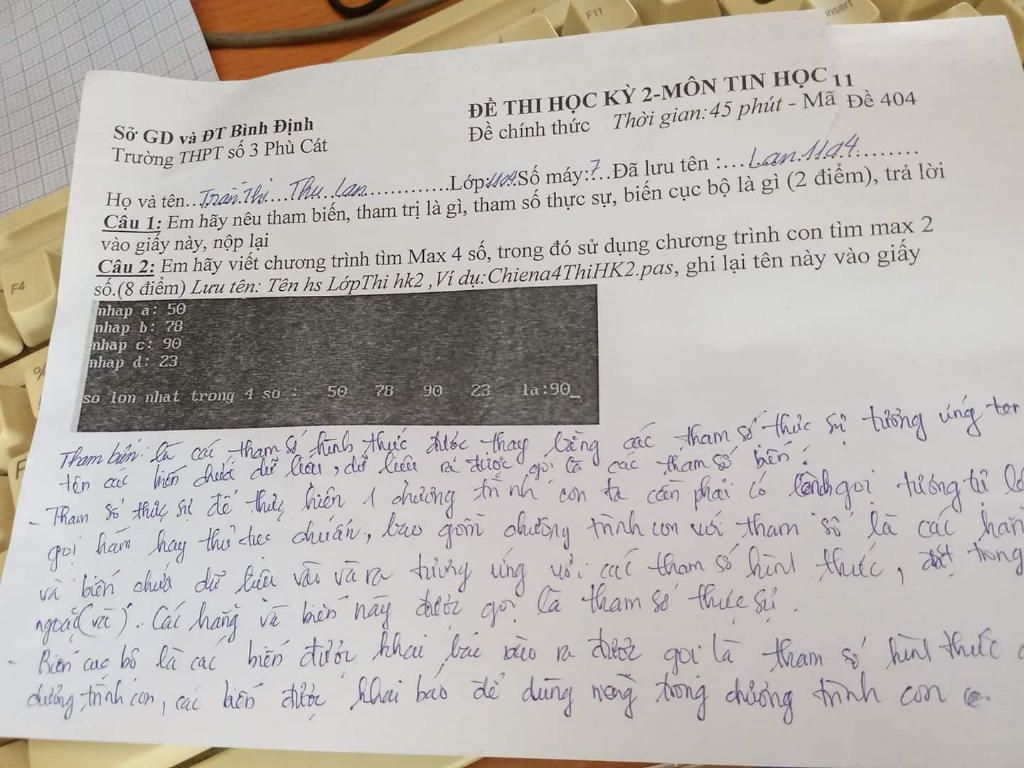 F11
insert
F4
Sở GD và ĐT Bình Định
Trường THPT số 3 Phù Cát
ĐỀ THI HỌC KỲ 2-MÔN TIN HỌC 11
Đề chính thức Thời gian:45 phút - Mã Đề 404
Họ và tên...Trần Thị Thu Lan............Lớp:11a4 Số máy:7..Đã lưu tên :....Lan11a4........
Câu 1: Em hãy nêu tham biến, tham trị là gì, tham số thực sự, biến cục bộ là gì (2 điểm), trả lời
vào giấy này, nộp lại
Câu 2: Em hãy viết chương trình tìm Max 4 số, trong đó sử dụng chương trình con tìm max 2
số.(8 điểm) Lưu tên: Tên hs LớpThi hk2 ,Ví dụ:Chiena4ThiHK2.pas, ghi lại tên này vào giấy
nhap a: 50
nhap b: 78
nhap c: 90
nhap d: 23
so lon nhat trong 4 so : 50 78 90 23 la:90_
Tham biến: là các tham số hình thức được thay bằng các tham số thực sự tương ứng
tên các biến chứa dữ liệu, dữ liệu ra được gọi là các tham số biến.
- Tham số thực sự để thực hiện 1 chương trình con ta cần phải có lệnh gọi tương tự
gọi hàm hay thủ tục chuẩn, bao gồm chương trình con với tham số là các
và biến chứa dữ liệu vào và ra tương ứng với các tham số hình thức, đặt trong
ngoặc (và). Các hằng và biến này được gọi là tham số thực sự.
- Biến cục bộ là các biến được khai báo vào ra được gọi là tham số hình thức
chương trình con, các biến được khai báo để dùng riêng trong chương trình con